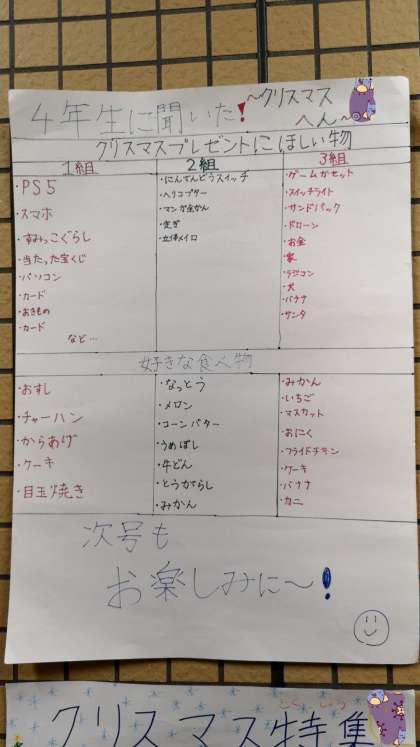 4年生に聞いた!
~クリスマス
へん~
クリスマスプレゼントにほしい物
1組
・PS5
・スマホ
・すみっこぐらし
・当たった宝くじ
・パソコン
・カード
・おきもの
・カード
など…
2組
・にんてんどうスイッチ
・ヘリコプター
・マンガ全かん
・立体メイロ
3組
・ゲームカセット
・スイッチライト
・サンドバック
・ドローン
・お金
・家
・ラジコン
・犬
・バナナ
・サンタ
好きな食べ物
・おすし
・チャーハン
・からあげ
・ケーキ
・目玉焼き
・なっとう
・メロン
・コーンバター
・うめぼし
・牛どん
・とうがらし
・みかん
・みかん
・いちご
・マスカット
・おにく
・フライドチキン
・ケーキ
・バナナ
・カニ
次号も
お楽しみに~!
クリスマス特集